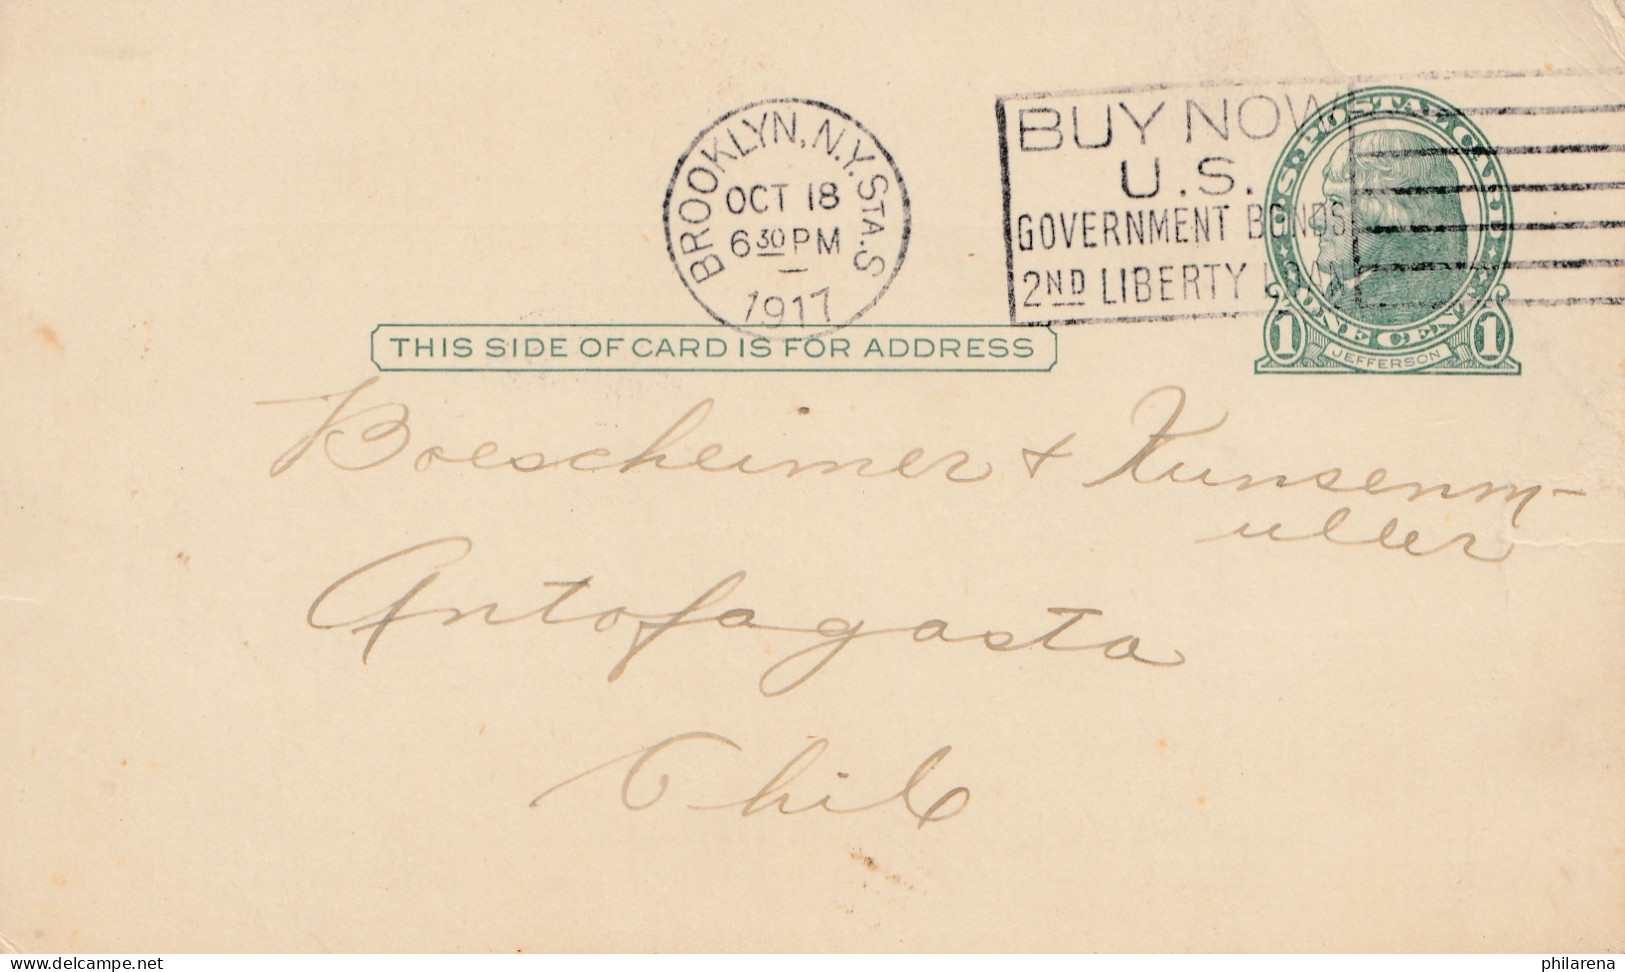 BROOKLYN, N.Y. STA. S
OCT 18
6 30 PM
1917
BUY NOW
U.S.
GOVERNMENT BONDS
2ND LIBERTY LOAN
U.S. POSTAL CARD
ONE CENT
1 JEFFERSON 1
THIS SIDE OF CARD IS FOR ADDRESS
Boescheimer + Kunsenm-
uller
Antofagasta
Chile
www.delcampe.net
philarena